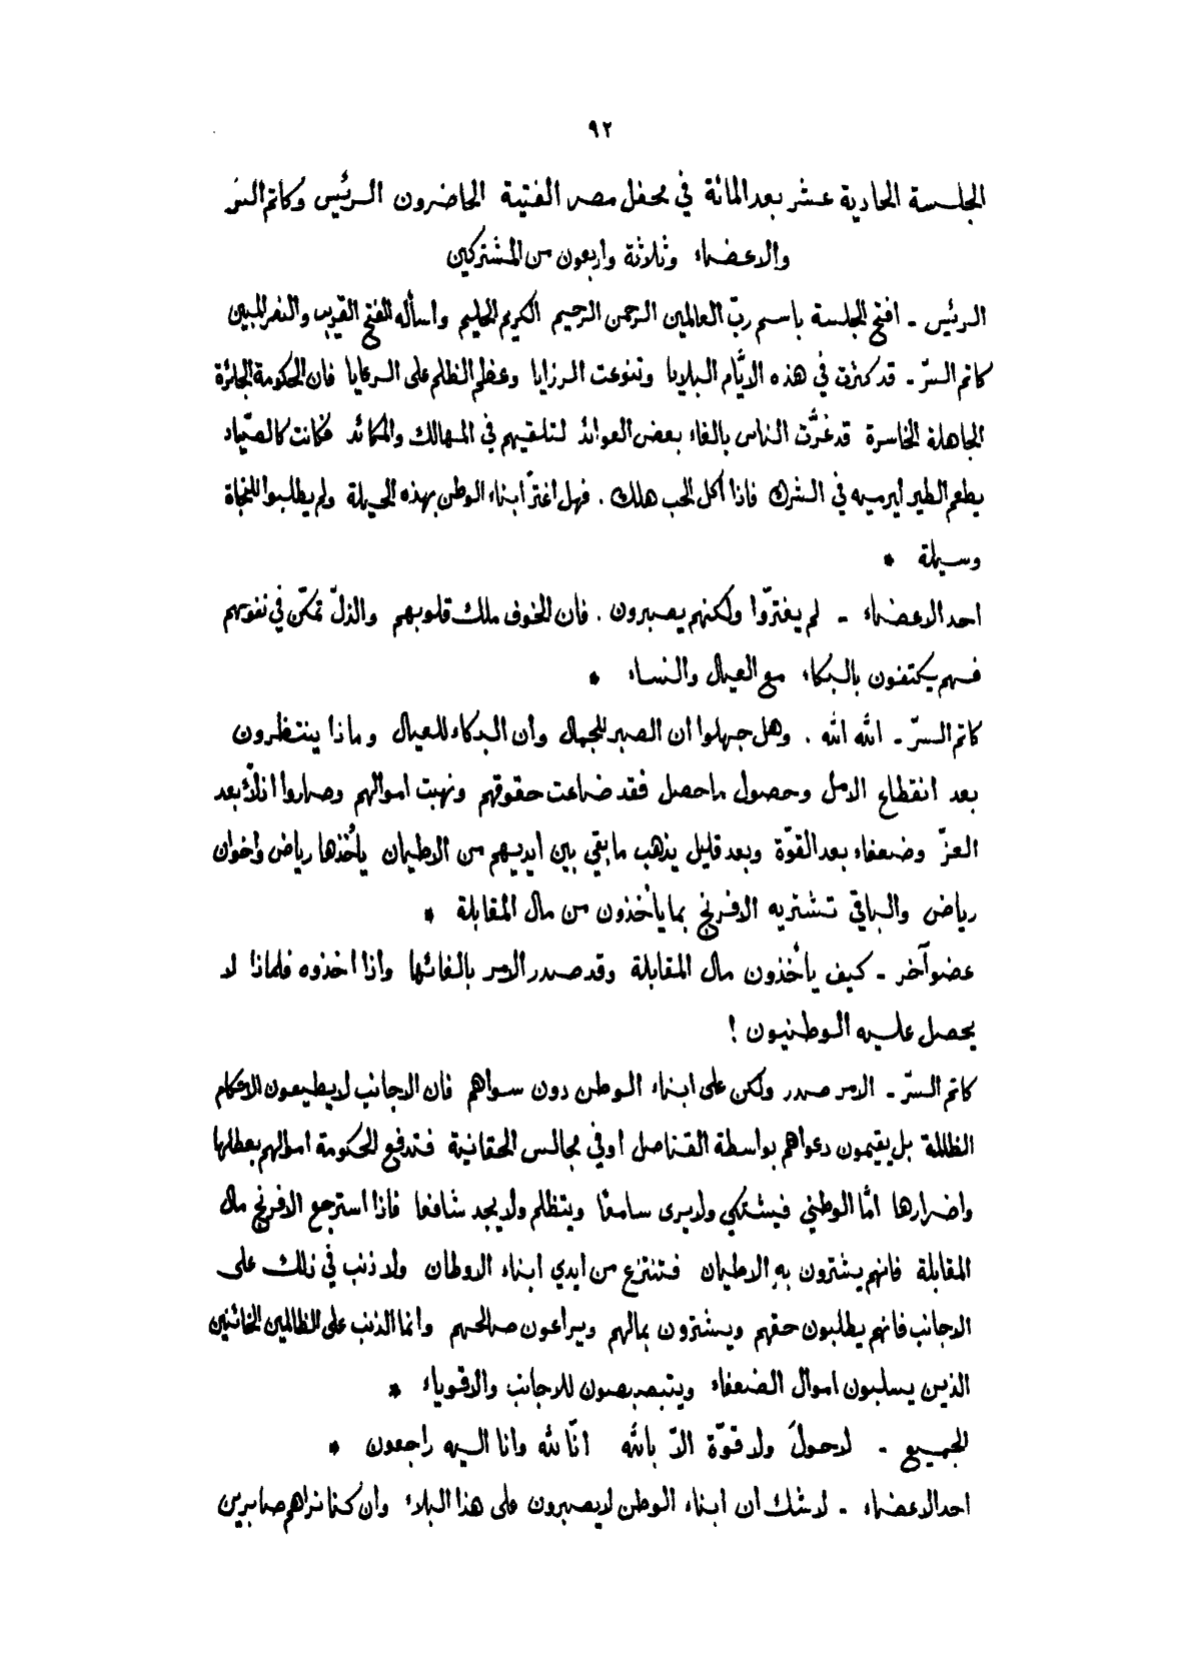 ٩٢
الجلسة الحادية عشر بعد المائة في محفل مصر الفتية الحاضرون الرئيس وكاتم السر
والاعضاء وثلاثة واربعون من المشتركين
الرئيس - افتح الجلسة باسم ربّ العالمين الرحمن الرحيم الكريم الحليم واسأله الفتح القريب والنصر المبين
كاتم السرّ - قد كثرت في هذه الايّام البلايا وتنوعت الرزايا وعظم الظلم على الرعايا فان الحكومة الجائرة
الجاهلة الخاسرة قد غرَّت الناس بالغاء بعض العوائد لتلقيهم في المهالك والمكائد فكانت كالصيّاد
يطعم الطير ليرميه في الشرك فاذا أكل الحب هلك . فهل اغترّ ابناء الوطن بهذه الحيلة ولم يطلبوا للنجاة
وسيلة *
احد الاعضاء - لم يغترّوا ولكنهم يصبرون . فان الخوف ملك قلوبهم والذلّ تمكّن في نفوسهم
فهم يكتفون بالبكاء مع العيال والنساء *
كاتم السرّ - الله الله . وهل جهلوا ان الصبر للجمال وأن البكاء للعيال وماذا ينتظرون
بعد انقطاع الامل وحصول ماحصل فقد ضاعت حقوقهم ونهبت اموالهم وصاروا اذلّاء بعد
العزّ وضعفاء بعد القوّة وبعد قليل يذهب مابقي بين ايديهم من الاطيان يأخذها رياض واخوان
رياض والباقي تشتريه الافرنج بما يأخذون من مال المقابلة *
عضو آخر - كيف يأخذون مال المقابلة وقد صدر الامر بالغائها واذا اخذوه فلماذا لا
يحصل عليه الوطنيون !
كاتم السرّ - الامر صدر ولكن على ابناء الوطن دون سواهم فان الاجانب لايطيعون الاحكام
الظالمة بل يقيمون دعواهم بواسطة القناصل اوفي مجالس الحقانية فتدفع الحكومة اموالهم بعطلها
واضرارها امّا الوطني فيشتكي ولايرى سامعًا ويتظلم ولايجد شافعا فاذا استرجع الافرنج مال
المقابلة فانهم يشترون بهِ الاطيان فتنتزع من ايدي ابناء الاوطان ولا ذنب في ذلك على
الاجانب فانهم يطلبون حقهم ويشترون بمالهم ويراعون صالحهم وانما الذنب على الظالمين الخائنين
الذين يسلبون اموال الضعفاء ويتبصبصون للاجانب والاقوياء *
الجميع - لاحولَ ولا قوّة الاّ بالله انّا لله وانا اليه راجعون *
احد الاعضاء - لاشك ان ابناء الوطن لايصبرون على هذا البلاء وان كنا نراهم صابرين